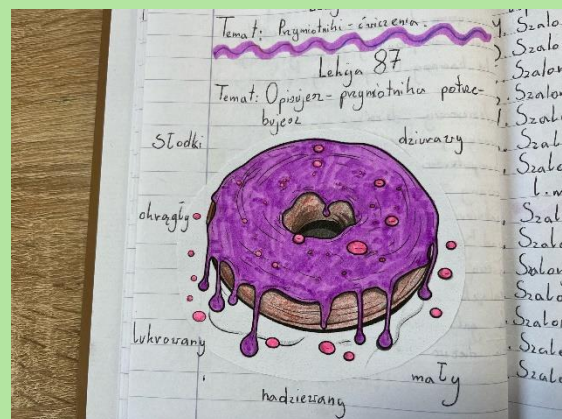 Temat: Przymiotniki - ćwiczenia.
Lekcja 87
Temat: Opisujesz - przymiotnika potrze-
bujesz
Słodki
dziurawy
okrągły
lukrowany
mały
nadziewany
Szalo
Szalo
Szalon
Szalon
Szalo
Szalo
Szalo
Szalo
Szalo
Szalon
Szalo
Szalon
Szalo
Szalo